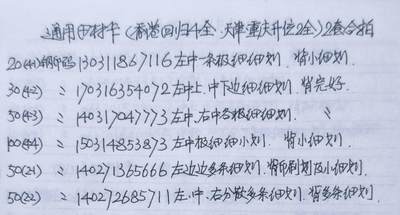 通用田村卡(香港回归4全、天津重庆升位2全)2套合拍
20(4-1)钢印码130311867116左中一条极细细划.背小细划.
30(4-2) 〃 170316354072左中上.中下边细细划.背完好.
50(4-3) 〃 140317047773左中.右中各极细细划. 〃
100(4-4) 〃 150314853873左中极细细小划.背小细划.
50(2-1) 〃 140271365666左边边多条细划.背印刷划及小细划.
50(2-2) 〃 140272685711左.中.右分散多条细划.背多条细划.